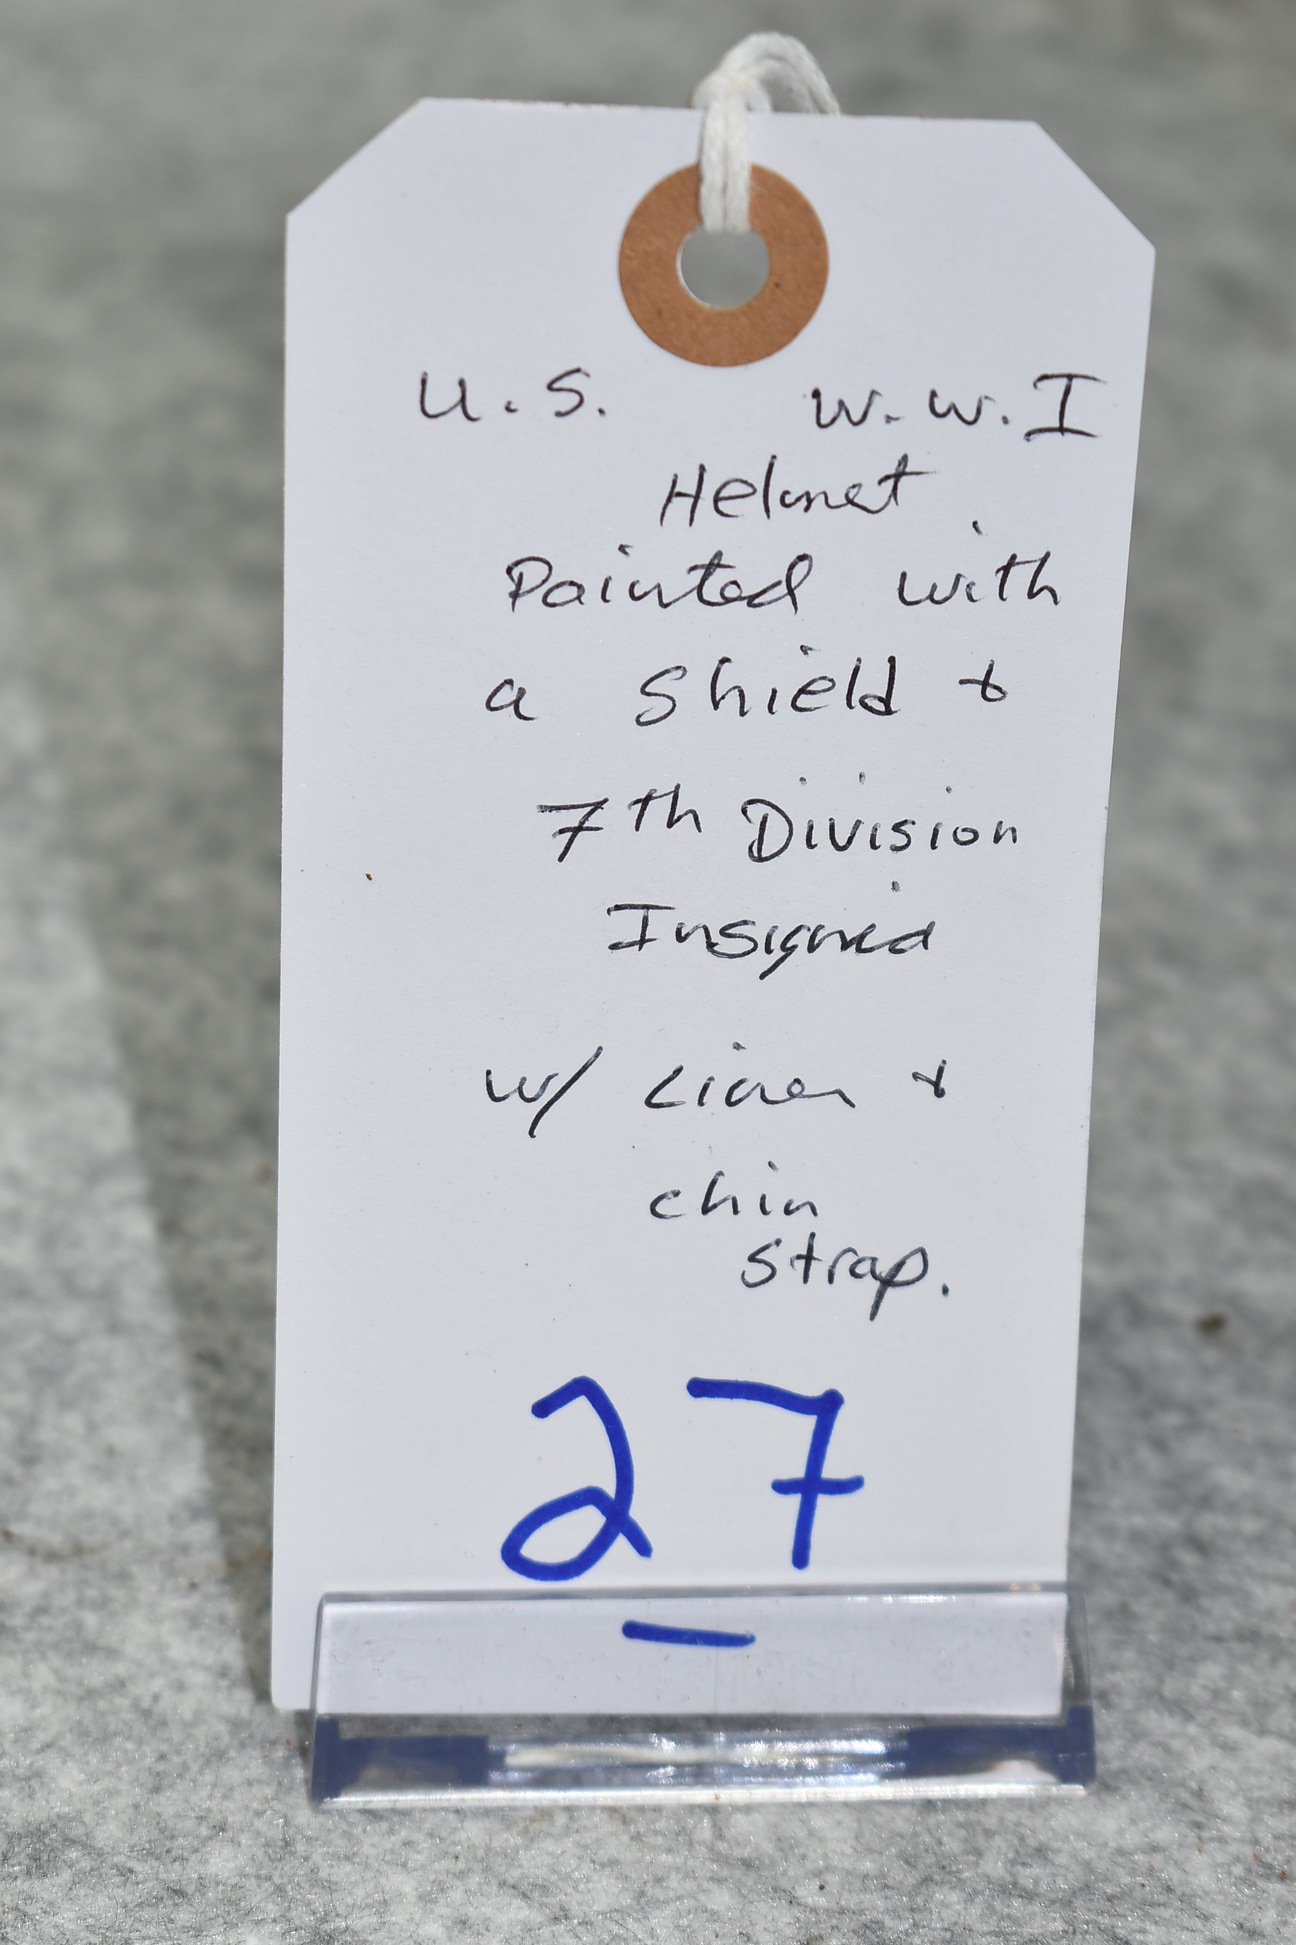 U.S. W.W.I
Helmet
Painted with
a Shield &
7th Division
Insignia
w/ Liner &
chin
strap.
27